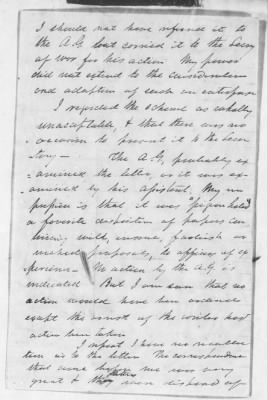 I should not have referred it to
the A.G. but carried it to the Secy
of War for his action. My power
did not extend to the consideration
and adoption of such an enterprise
I regarded the scheme as wholly
unacceptable, & that there was no
occasion to present it to the Secre-
tary — The A.G. probably ex-
amined the letter, as it was ex-
amined by his assistant. My im-
pression is that it was
a favorite disposition of papers con
with, insane, foolish or
wicked proposals, to officers of ex
perience — No action by the A.G. is
indicated But I am sure that no
action would have been
except the arrest of the writer had
action been taken
I repeat I have no recollec-
tion as to the letter. The correspondence
that came before me was very
great & the letters were disposed of